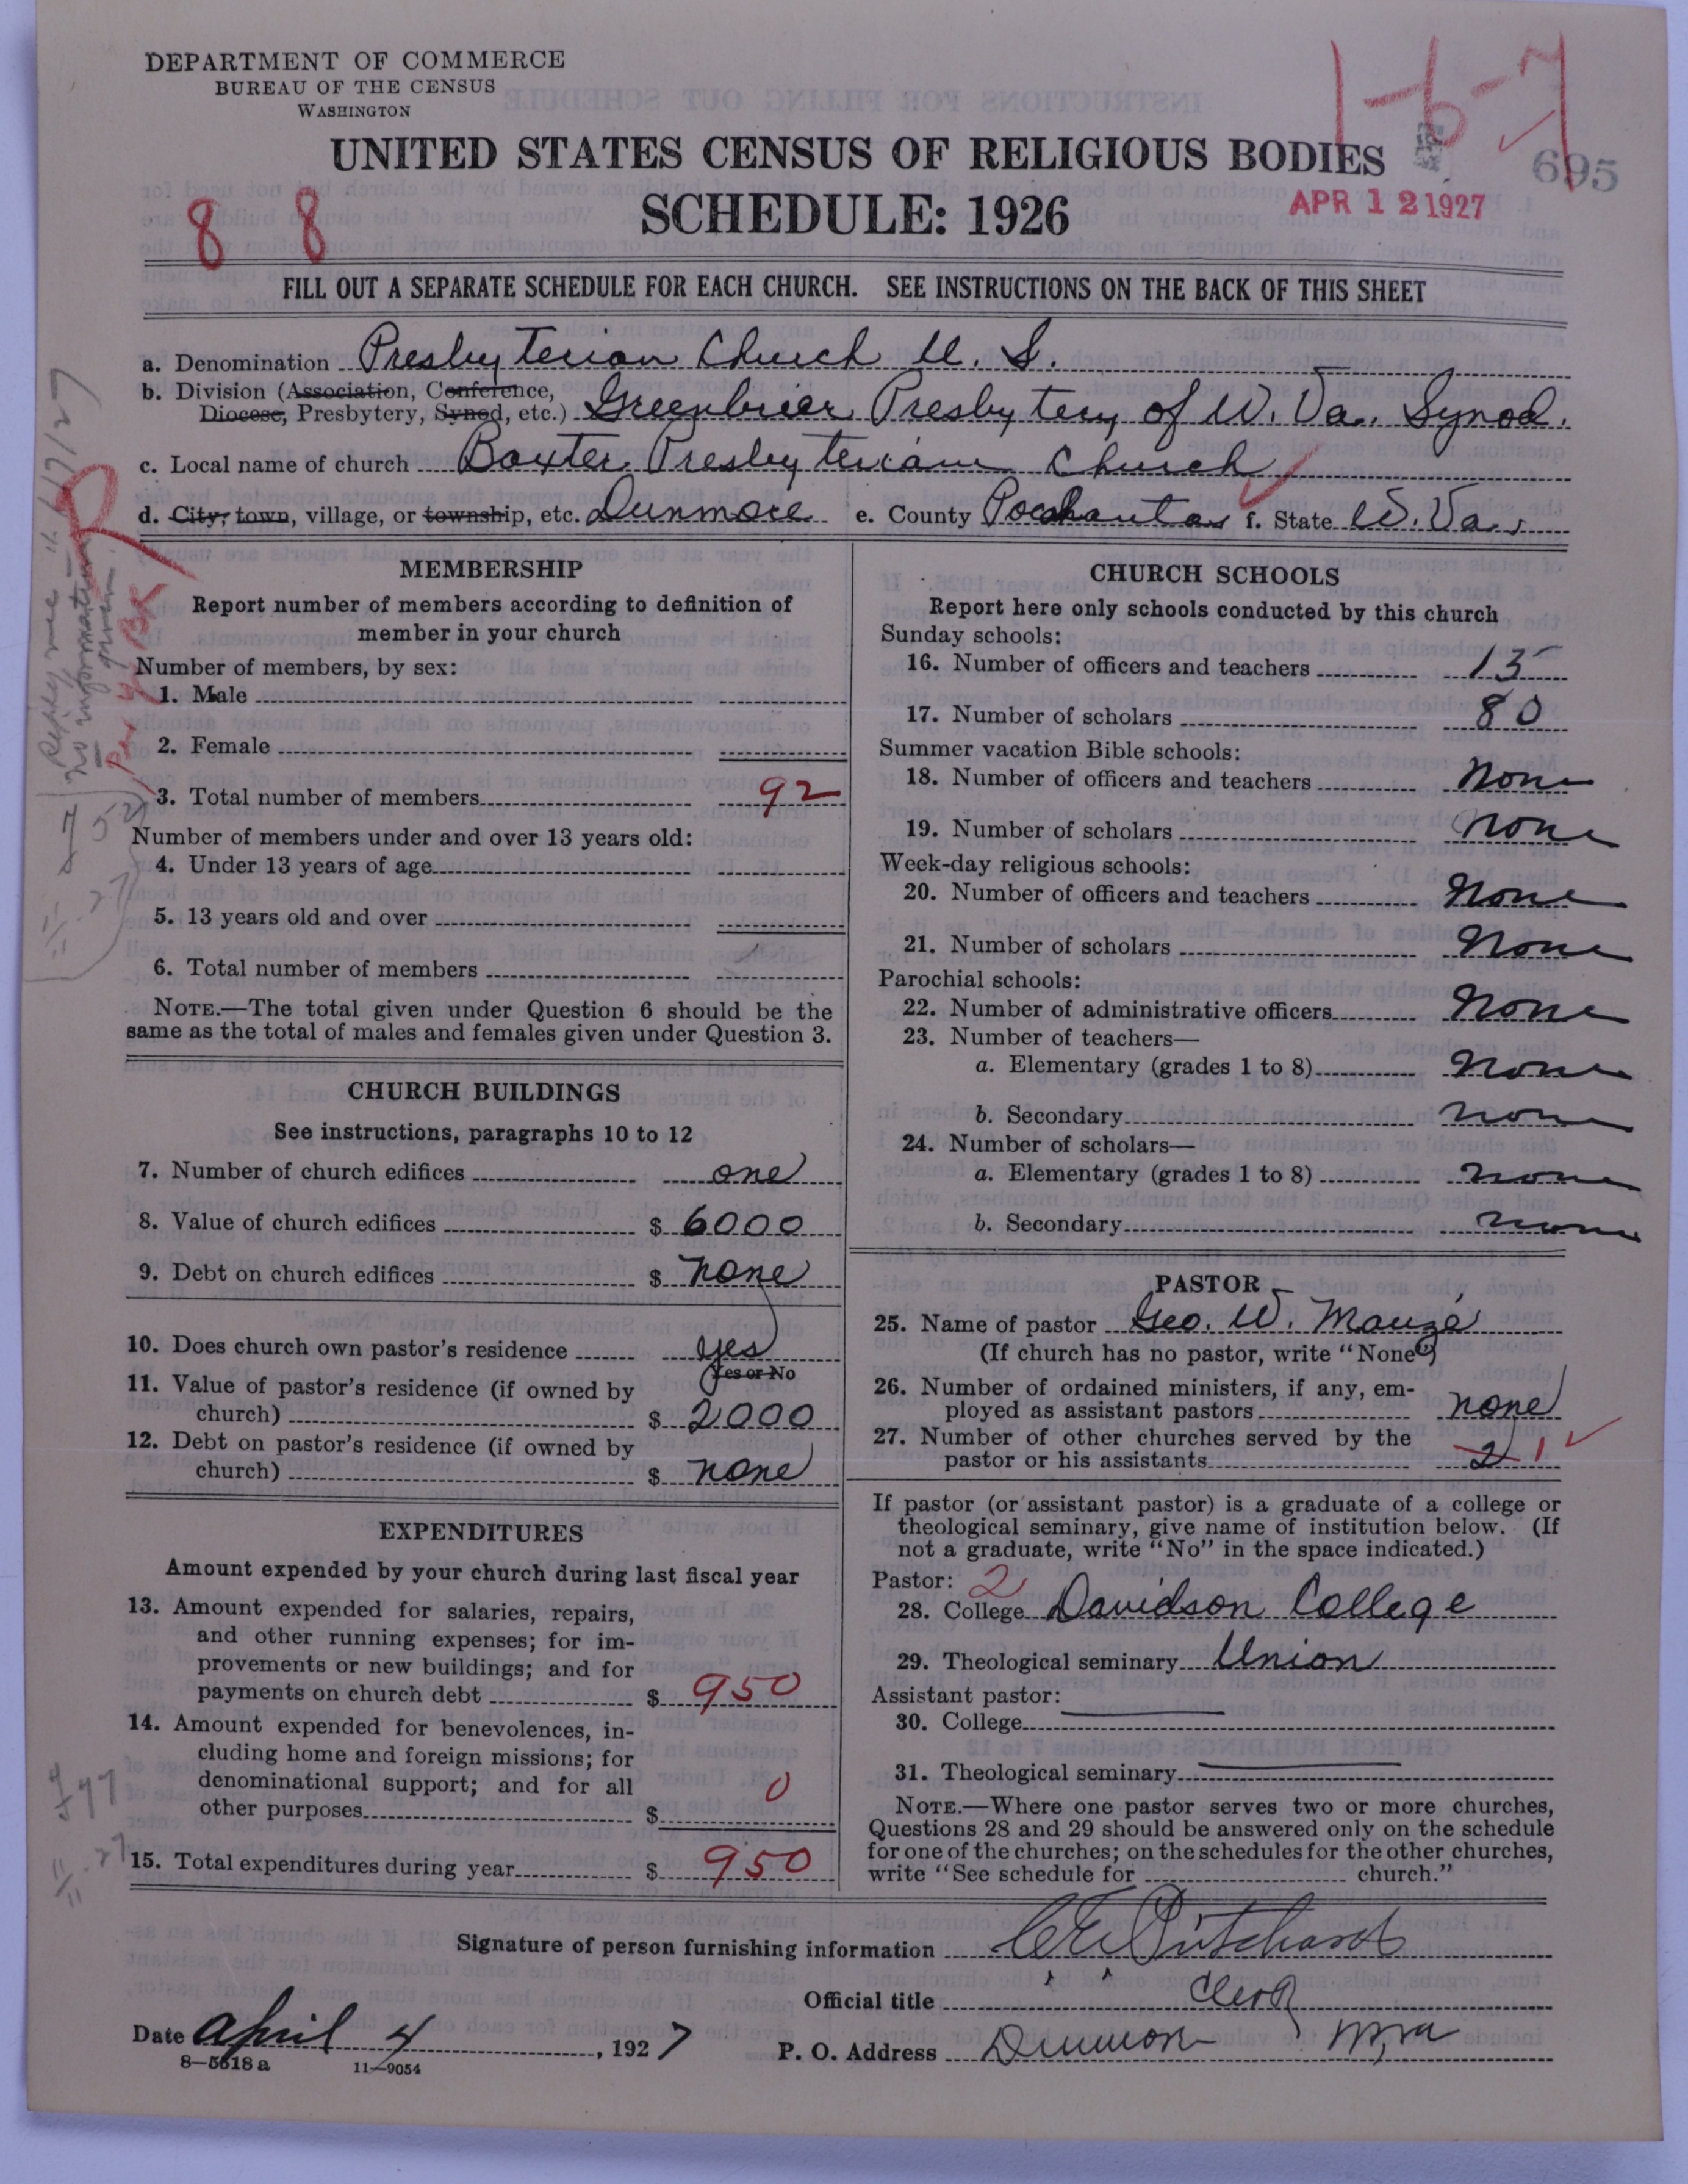 DEPARTMENT OF COMMERCE
BUREAU OF THE CENSUS
WASHINGTON
UNITED STATES CENSUS OF RELIGIOUS BODIES
695
SCHEDULE: 1926
APR 12 1927
8 8
FILL OUT A SEPARATE SCHEDULE FOR EACH CHURCH. SEE INSTRUCTIONS ON THE BACK OF THIS SHEET
a. Denomination Presbyterian Church U. S.
b. Division (Association, Conference,
Diocese, Presbytery, Synod, etc.) Greenbrier Presbytery of W. Va. Synod.
c. Local name of church Baxter Presbyterian Church
d. City, town, village, or township, etc. Dunmore e. County Pocahontas f. State W. Va.
MEMBERSHIP
Report number of members according to definition of
member in your church
Number of members, by sex:
1. Male
2. Female
3. Total number of members 92
Number of members under and over 13 years old:
4. Under 13 years of age
5. 13 years old and over
6. Total number of members
NOTE.—The total given under Question 6 should be the
same as the total of males and females given under Question 3.
CHURCH BUILDINGS
See instructions, paragraphs 10 to 12
7. Number of church edifices one
8. Value of church edifices $ 6000
9. Debt on church edifices $ none
10. Does church own pastor's residence yes
Yes or No
11. Value of pastor's residence (if owned by
church) $ 2000
12. Debt on pastor's residence (if owned by
church) $ none
EXPENDITURES
Amount expended by your church during last fiscal year
13. Amount expended for salaries, repairs,
and other running expenses; for im-
provements or new buildings; and for
payments on church debt $ 950
14. Amount expended for benevolences, in-
cluding home and foreign missions; for
denominational support; and for all
other purposes $ 0
15. Total expenditures during year $ 950
CHURCH SCHOOLS
Report here only schools conducted by this church
Sunday schools:
16. Number of officers and teachers 15
17. Number of scholars 80
Summer vacation Bible schools:
18. Number of officers and teachers None
19. Number of scholars none
Week-day religious schools:
20. Number of officers and teachers None
21. Number of scholars None
Parochial schools:
22. Number of administrative officers None
23. Number of teachers—
a. Elementary (grades 1 to 8) None
b. Secondary none
24. Number of scholars—
a. Elementary (grades 1 to 8) none
b. Secondary none
PASTOR
25. Name of pastor Geo. W. Mauzé
(If church has no pastor, write "None")
26. Number of ordained ministers, if any, em-
ployed as assistant pastors none
27. Number of other churches served by the
pastor or his assistants 2 1
If pastor (or assistant pastor) is a graduate of a college or
theological seminary, give name of institution below. (If
not a graduate, write "No" in the space indicated.)
Pastor: 2
28. College Davidson College
29. Theological seminary Union
Assistant pastor:
30. College
31. Theological seminary
NOTE.—Where one pastor serves two or more churches,
Questions 28 and 29 should be answered only on the schedule
for one of the churches; on the schedules for the other churches,
write "See schedule for church."
Signature of person furnishing information C E Pritchard
Official title Clerk
Date April 4, 1927 P. O. Address Dunmore
8—5618 a 11—9054